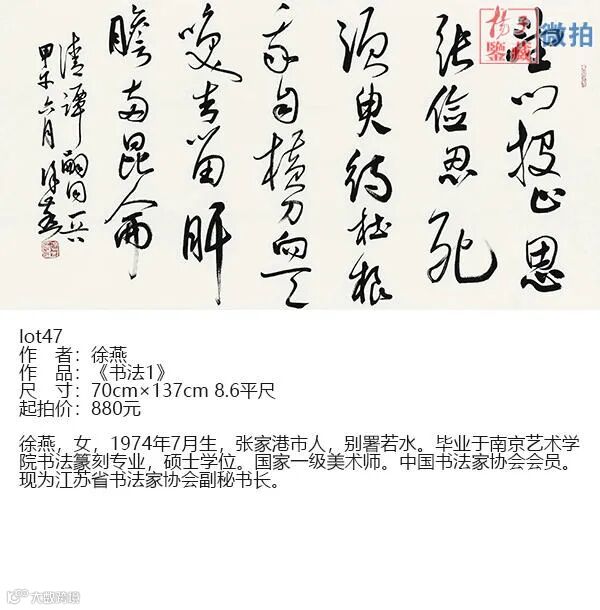 子藏
楊鑒
微拍
望門投止思
張儉忍死
須臾待杜根
我自橫刀向天
笑去留肝
膽兩昆侖
清譚嗣同
甲午六月徐燕
lot47
作 者：徐燕
作 品：《书法1》
尺 寸：70cm×137cm 8.6平尺
起拍价：880元
徐燕，女，1974年7月生，张家港市人，别署若水。毕业于南京艺术学
院书法篆刻专业，硕士学位。国家一级美术师。中国书法家协会会员。
现为江苏省书法家协会副秘书长。
大数跨境